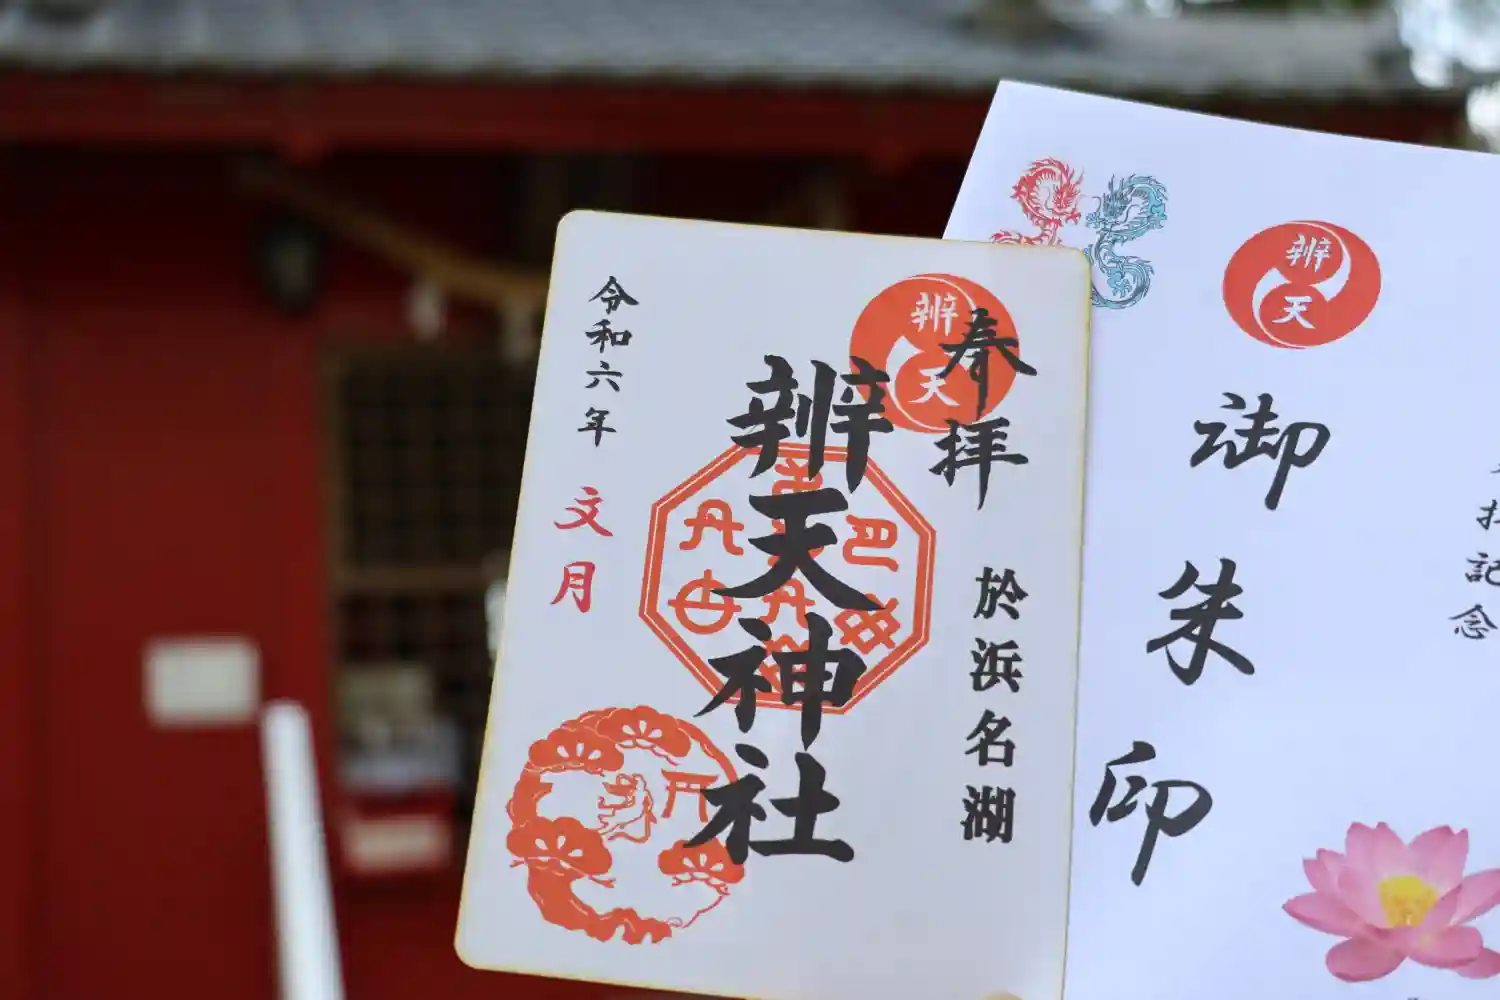 奉拝
於浜名湖
辨天
辨天神社
令和六年
文月
辨
天
記念
御朱印